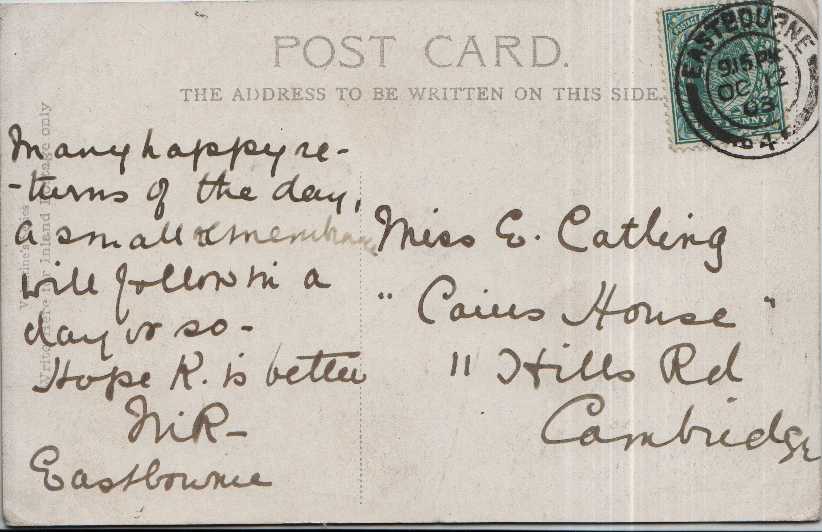 POST CARD.
THE ADDRESS TO BE WRITTEN ON THIS SIDE.
EASTBOURNE
9 15 PM
OC 12
03
Many happy re-
-turns of the day,
a small remembrance
will follow in a
day or so -
Hope K. is better
Eastbourne
Miss E. Catling
"Caius House"
11 Hills Rd
Cambridge
Write here for Inland Postage only